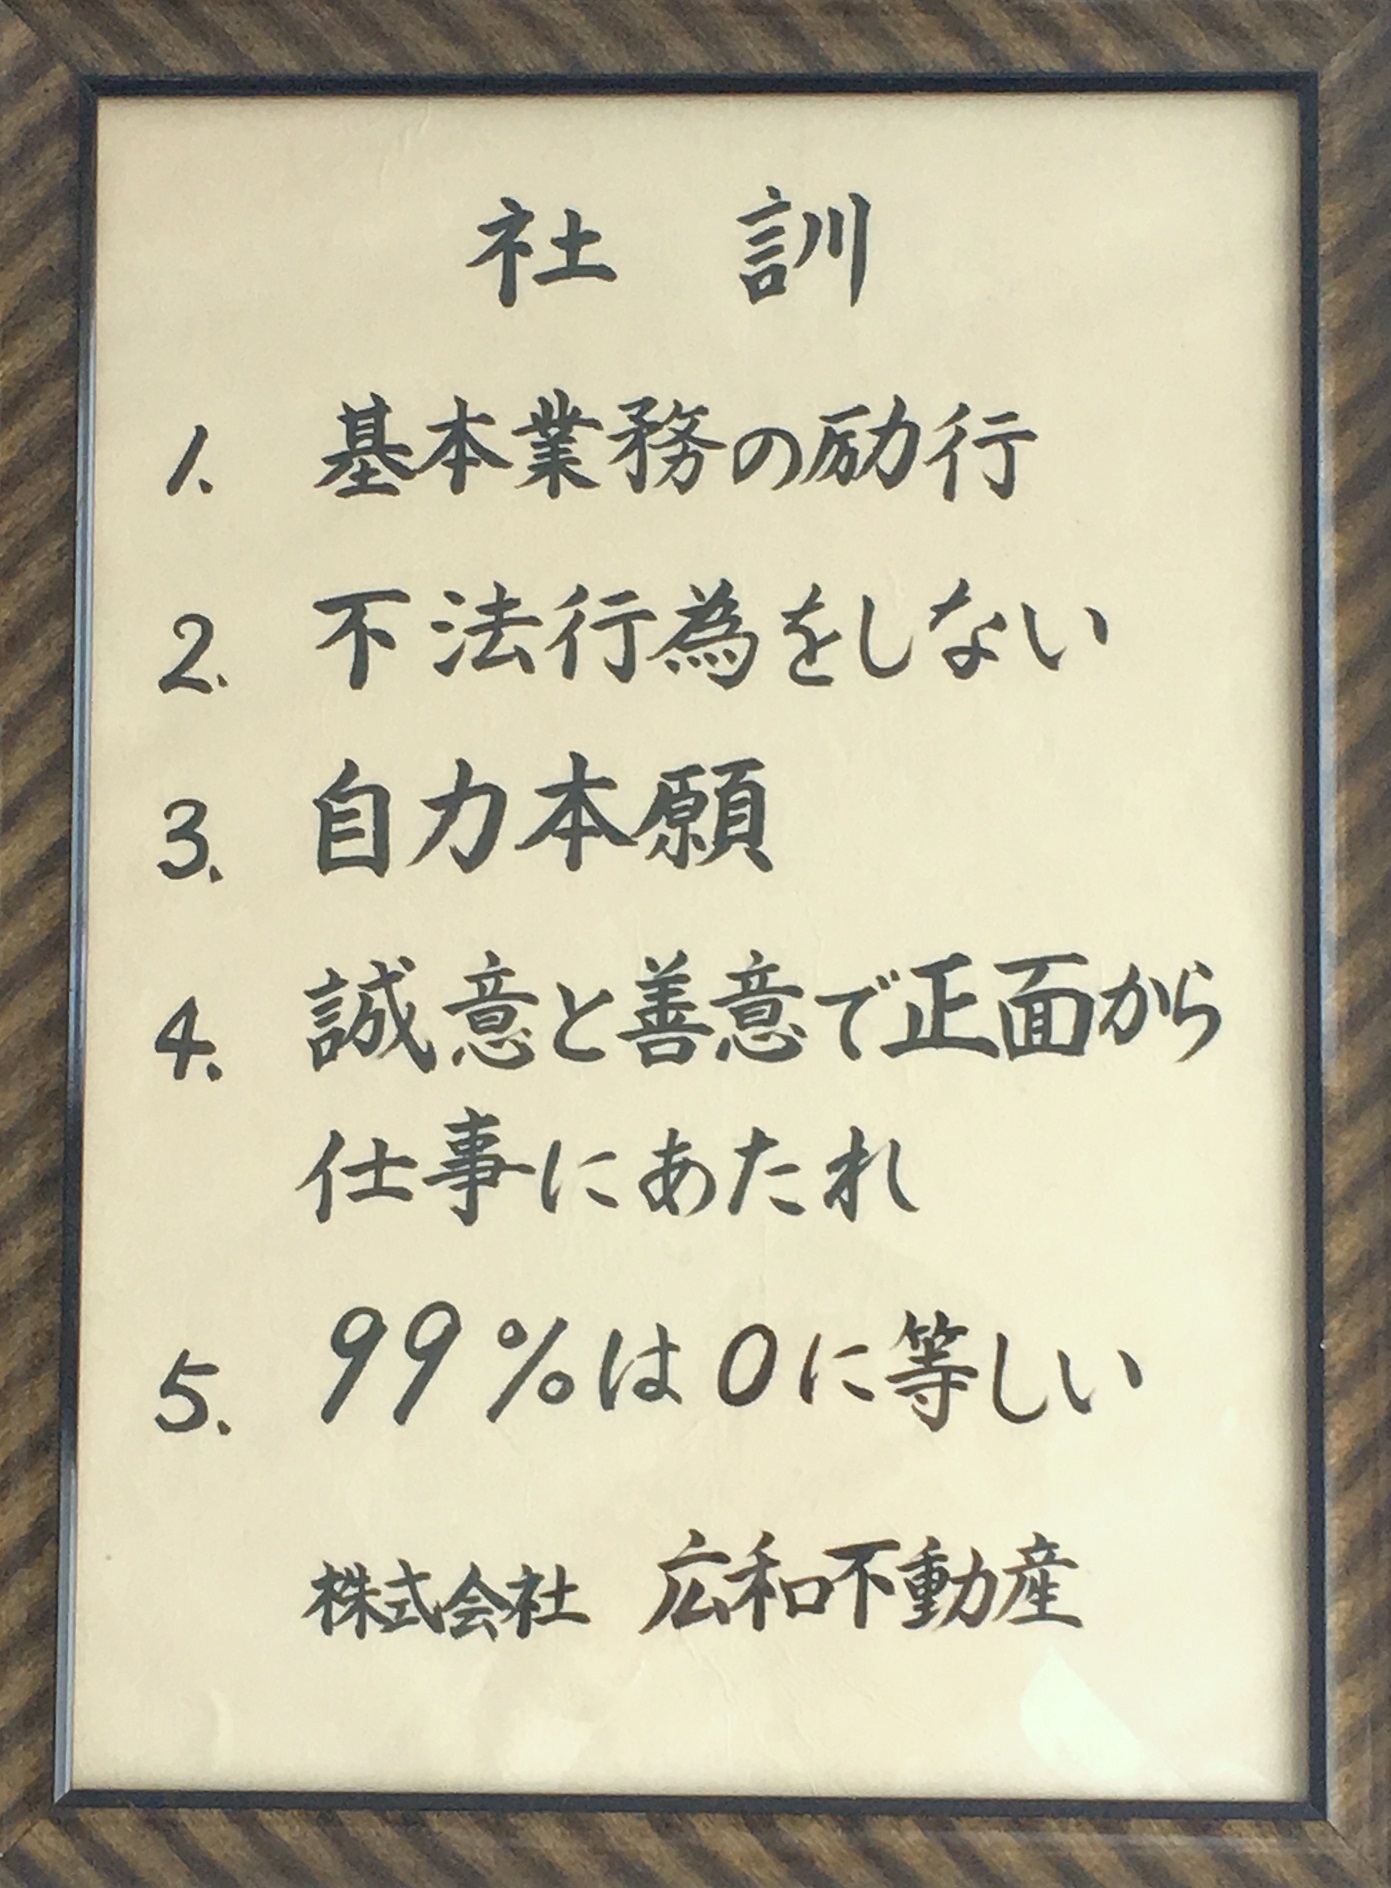 社 訓
1. 基本業務の励行
2. 不法行為をしない
3. 自力本願
4. 誠意と善意で正面から
仕事にあたれ
5. 99%は0に等しい
株式会社 広和不動産